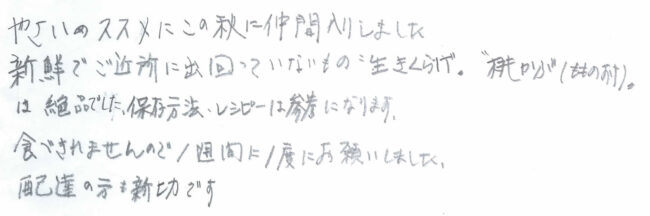 やさいのススメにこの秋に仲間入りしました
新鮮でご近所に出回っていないもの"生きくらげ。"桃かぶ(もものすけ)。
は絶品でした、保存方法、レシピーは参考になります。
食べきれませんので1週間に1度にお願いしました。
配達の方も親切です